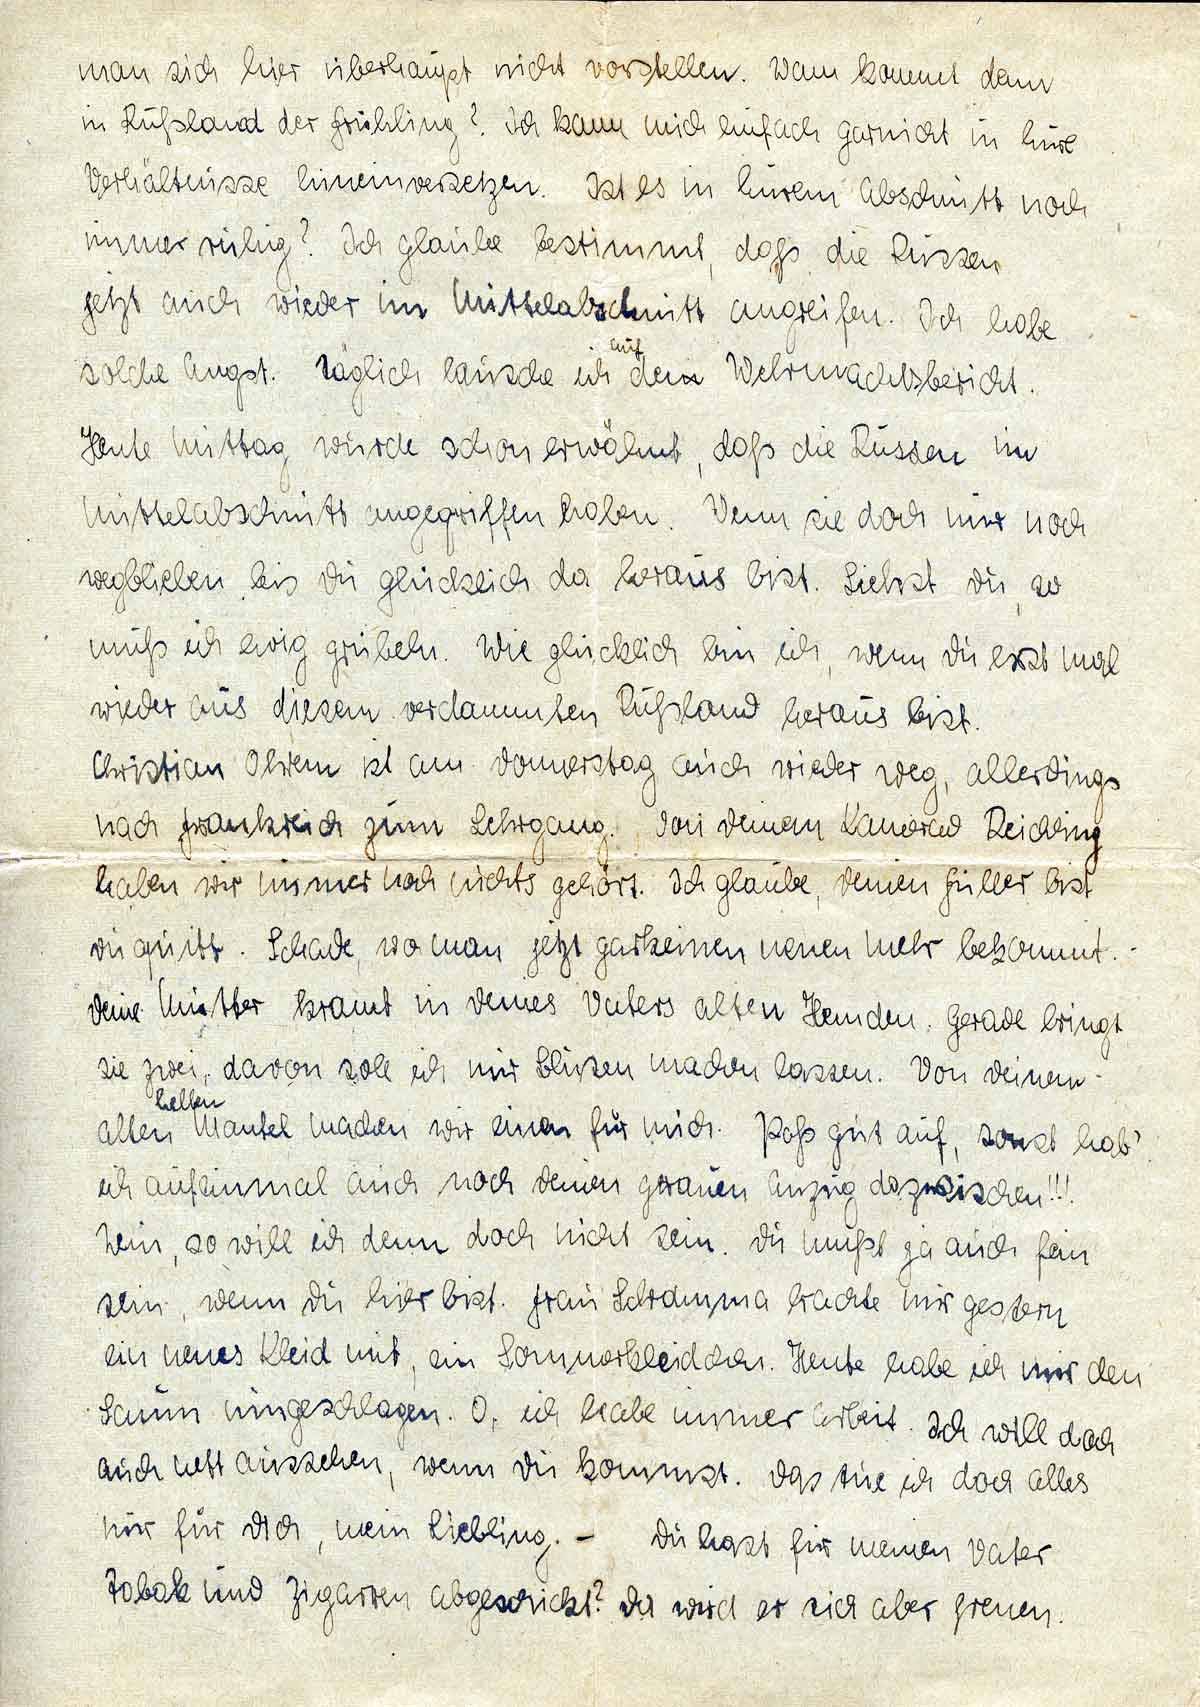 man sich hier überhaupt nicht vorstellen. Wann kommt denn
in Rußland der Frühling? Ich kann mich einfach garnicht in Eure
Verhältnisse hineinversetzen. Ist es in Eurem Abschnitt noch
immer ruhig? Ich glaube bestimmt, daß die Russen
jetzt auch wieder im Mittelabschnitt angreifen. Ich habe
solche Angst. Täglich lausche ich auf den Wehrmachtsbericht.
Heute Mittag wurde schon erwähnt, daß die Russen im
Mittelabschnitt angegriffen haben. Wenn sie doch nur noch
wegblieben bis Du glücklich da heraus bist. Siehst Du, so
muß ich ewig grübeln. Wie glücklich bin ich, wenn Du erst mal
wieder aus diesem verdammten Rußland heraus bist.
Christian Ohrem ist am Donnerstag auch wieder weg, allerdings
nach Frankreich zum Lehrgang. Von Deinem Kamerad Reiching
haben wir immer noch nichts gehört. Ich glaube, Deinen Füller bist
Du quitt. Schade, wo man jetzt garkeinen neuen mehr bekommt. -
Deine Mutter kramt in Deines Vaters alten Hemden. Gerade bringt
sie zwei, davon soll ich mir Blusen machen lassen. Von Deinem
alten hellen Mantel machen wir einen für mich. Paß gut auf, sonst hab'
ich aufeinmal auch noch Deinen grauen Anzug dazwischen!!!
Nein, so will ich denn doch nicht sein. Du mußt ja auch fein
sein, wenn Du hier bist. Frau Schramma brachte mir gestern
ein neues Kleid mit, ein Sommerkleidchen. Heute habe ich mir den
Saum umgeschlagen. O, ich habe immer Arbeit. Ich will doch
auch nett aussehen, wenn Du kommst. Das tue ich doch alles
nur für Dich, mein Liebling. - Du hast für meinen Vater
Tabak und Zigarren abgeschickt? Da wird er sich aber freuen.